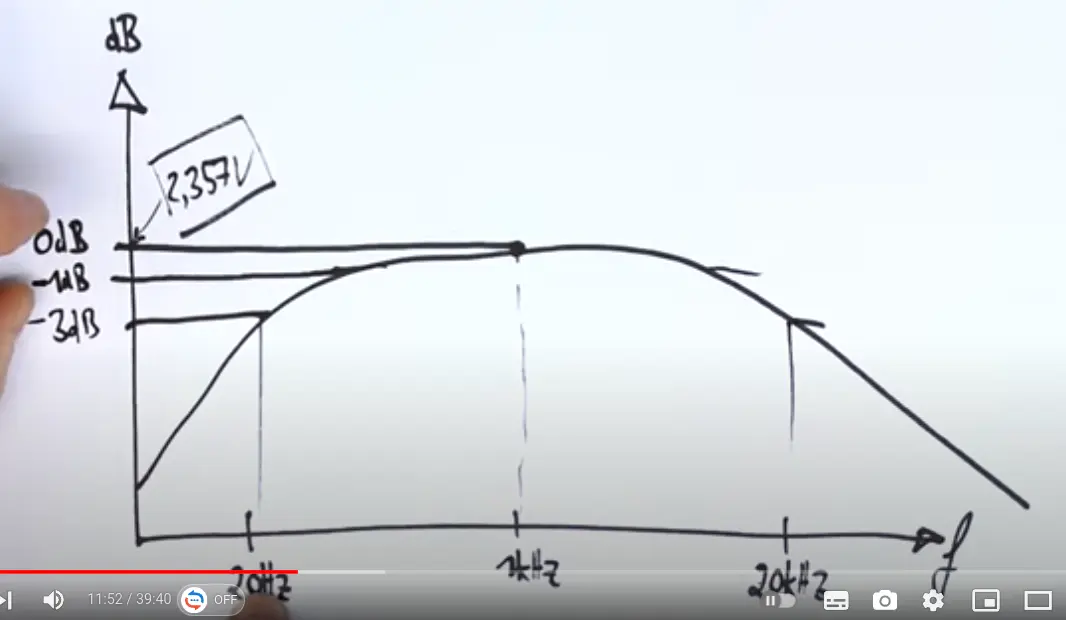 dB
2,357V
0dB
-1dB
-3dB
20Hz
1kHz
20kHz
f
11:52 / 39:40
OFF